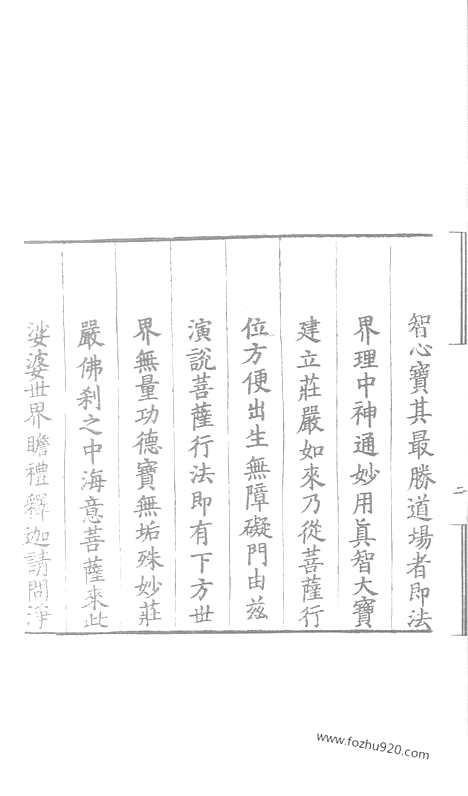 智心寶其最勝道場者即法
界理中神通妙用真智大寶
建立莊嚴如來乃從菩薩行
位方便出生無障礙門由茲
演說菩薩行法即有下方世
界無量功德寶無垢殊妙莊
嚴佛刹之中海意菩薩來此
娑婆世界瞻禮釋迦請問淨
二
www.fozhu920.com